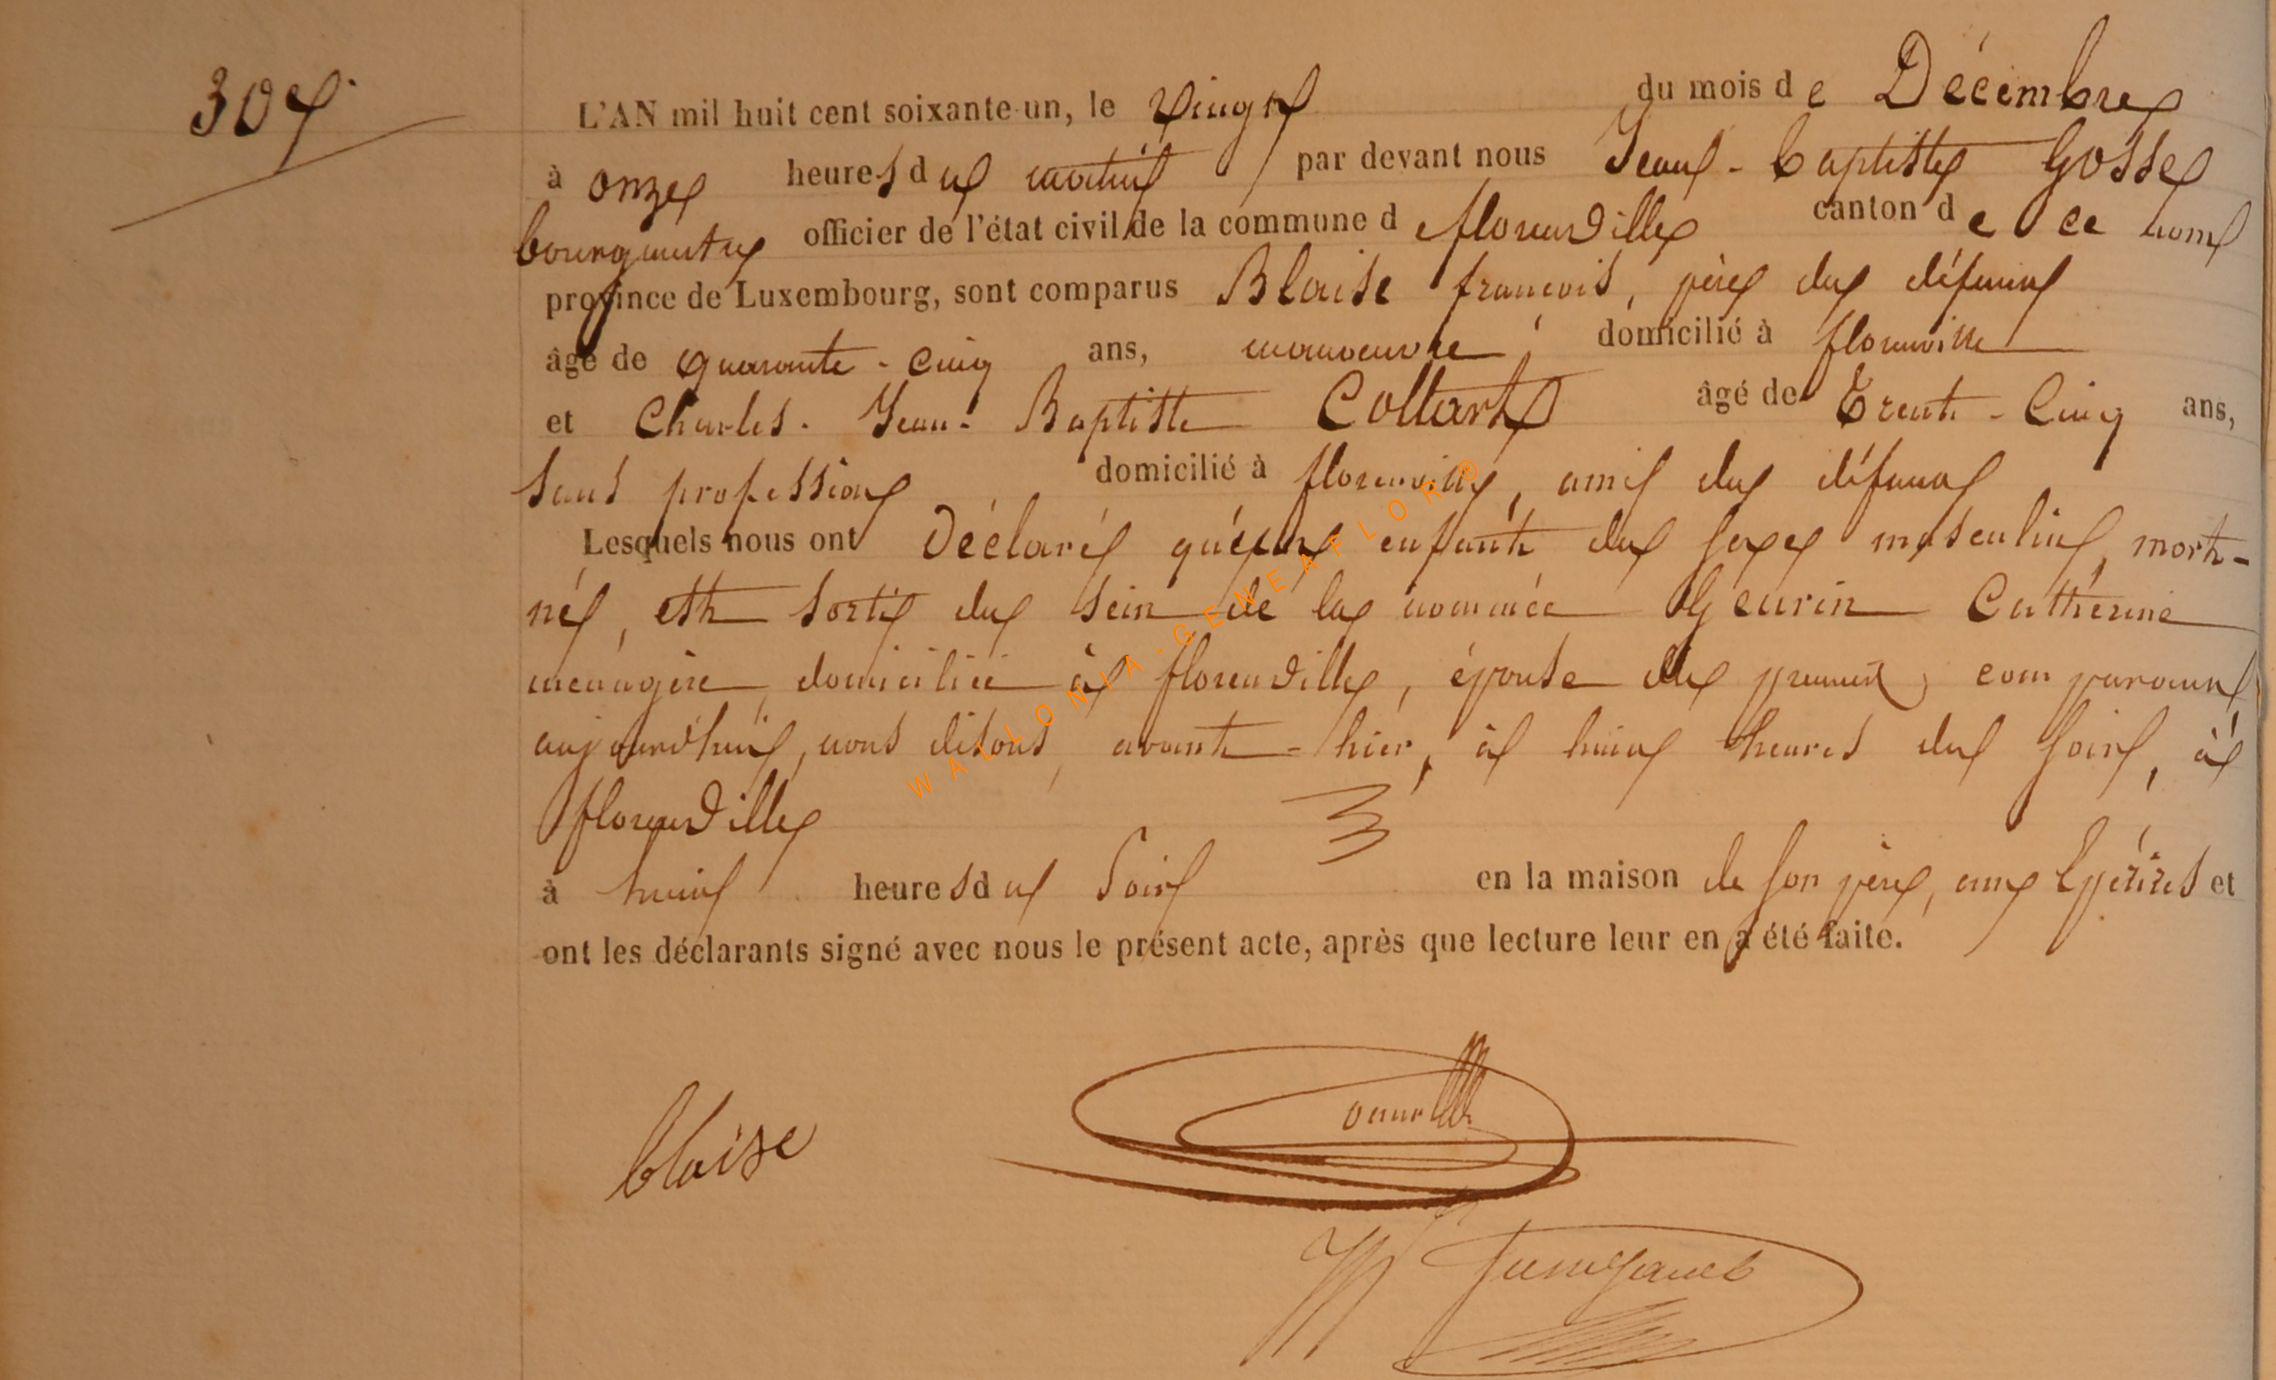 307
L'AN mil huit cent soixante-un, le vingt du mois de Décembre
à onze heures du matin, par devant nous Jean-baptiste Gosse
bourgmestre officier de l'état civil de la commune de florenville canton de ce nom
province de Luxembourg, sont comparus Blaise françois, père du défunt
âgé de quarante-cinq ans, manoeuvre, domicilié à florenville
et Charles-Jean-Baptiste Collart âgé de Trente-Cinq ans,
sans profession domicilié à florenville, ami du défunt
Lesquels nous ont Déclaré qu'un enfant du sexe masculin, mort-
né, est sorti du sein de la nommée Geurin Catherine
ménagère, domiciliée à florenville, épouse du premier comparant,
aujourd'hui, nous disons, avant-hier, à huit heures du soir, à
florenville
à huit heures du soir en la maison de son père, aux Epérires et
ont les déclarants signé avec nous le présent acte, après que lecture leur en a été faite.
blaise
WALLONIA-GENEAFLOR®